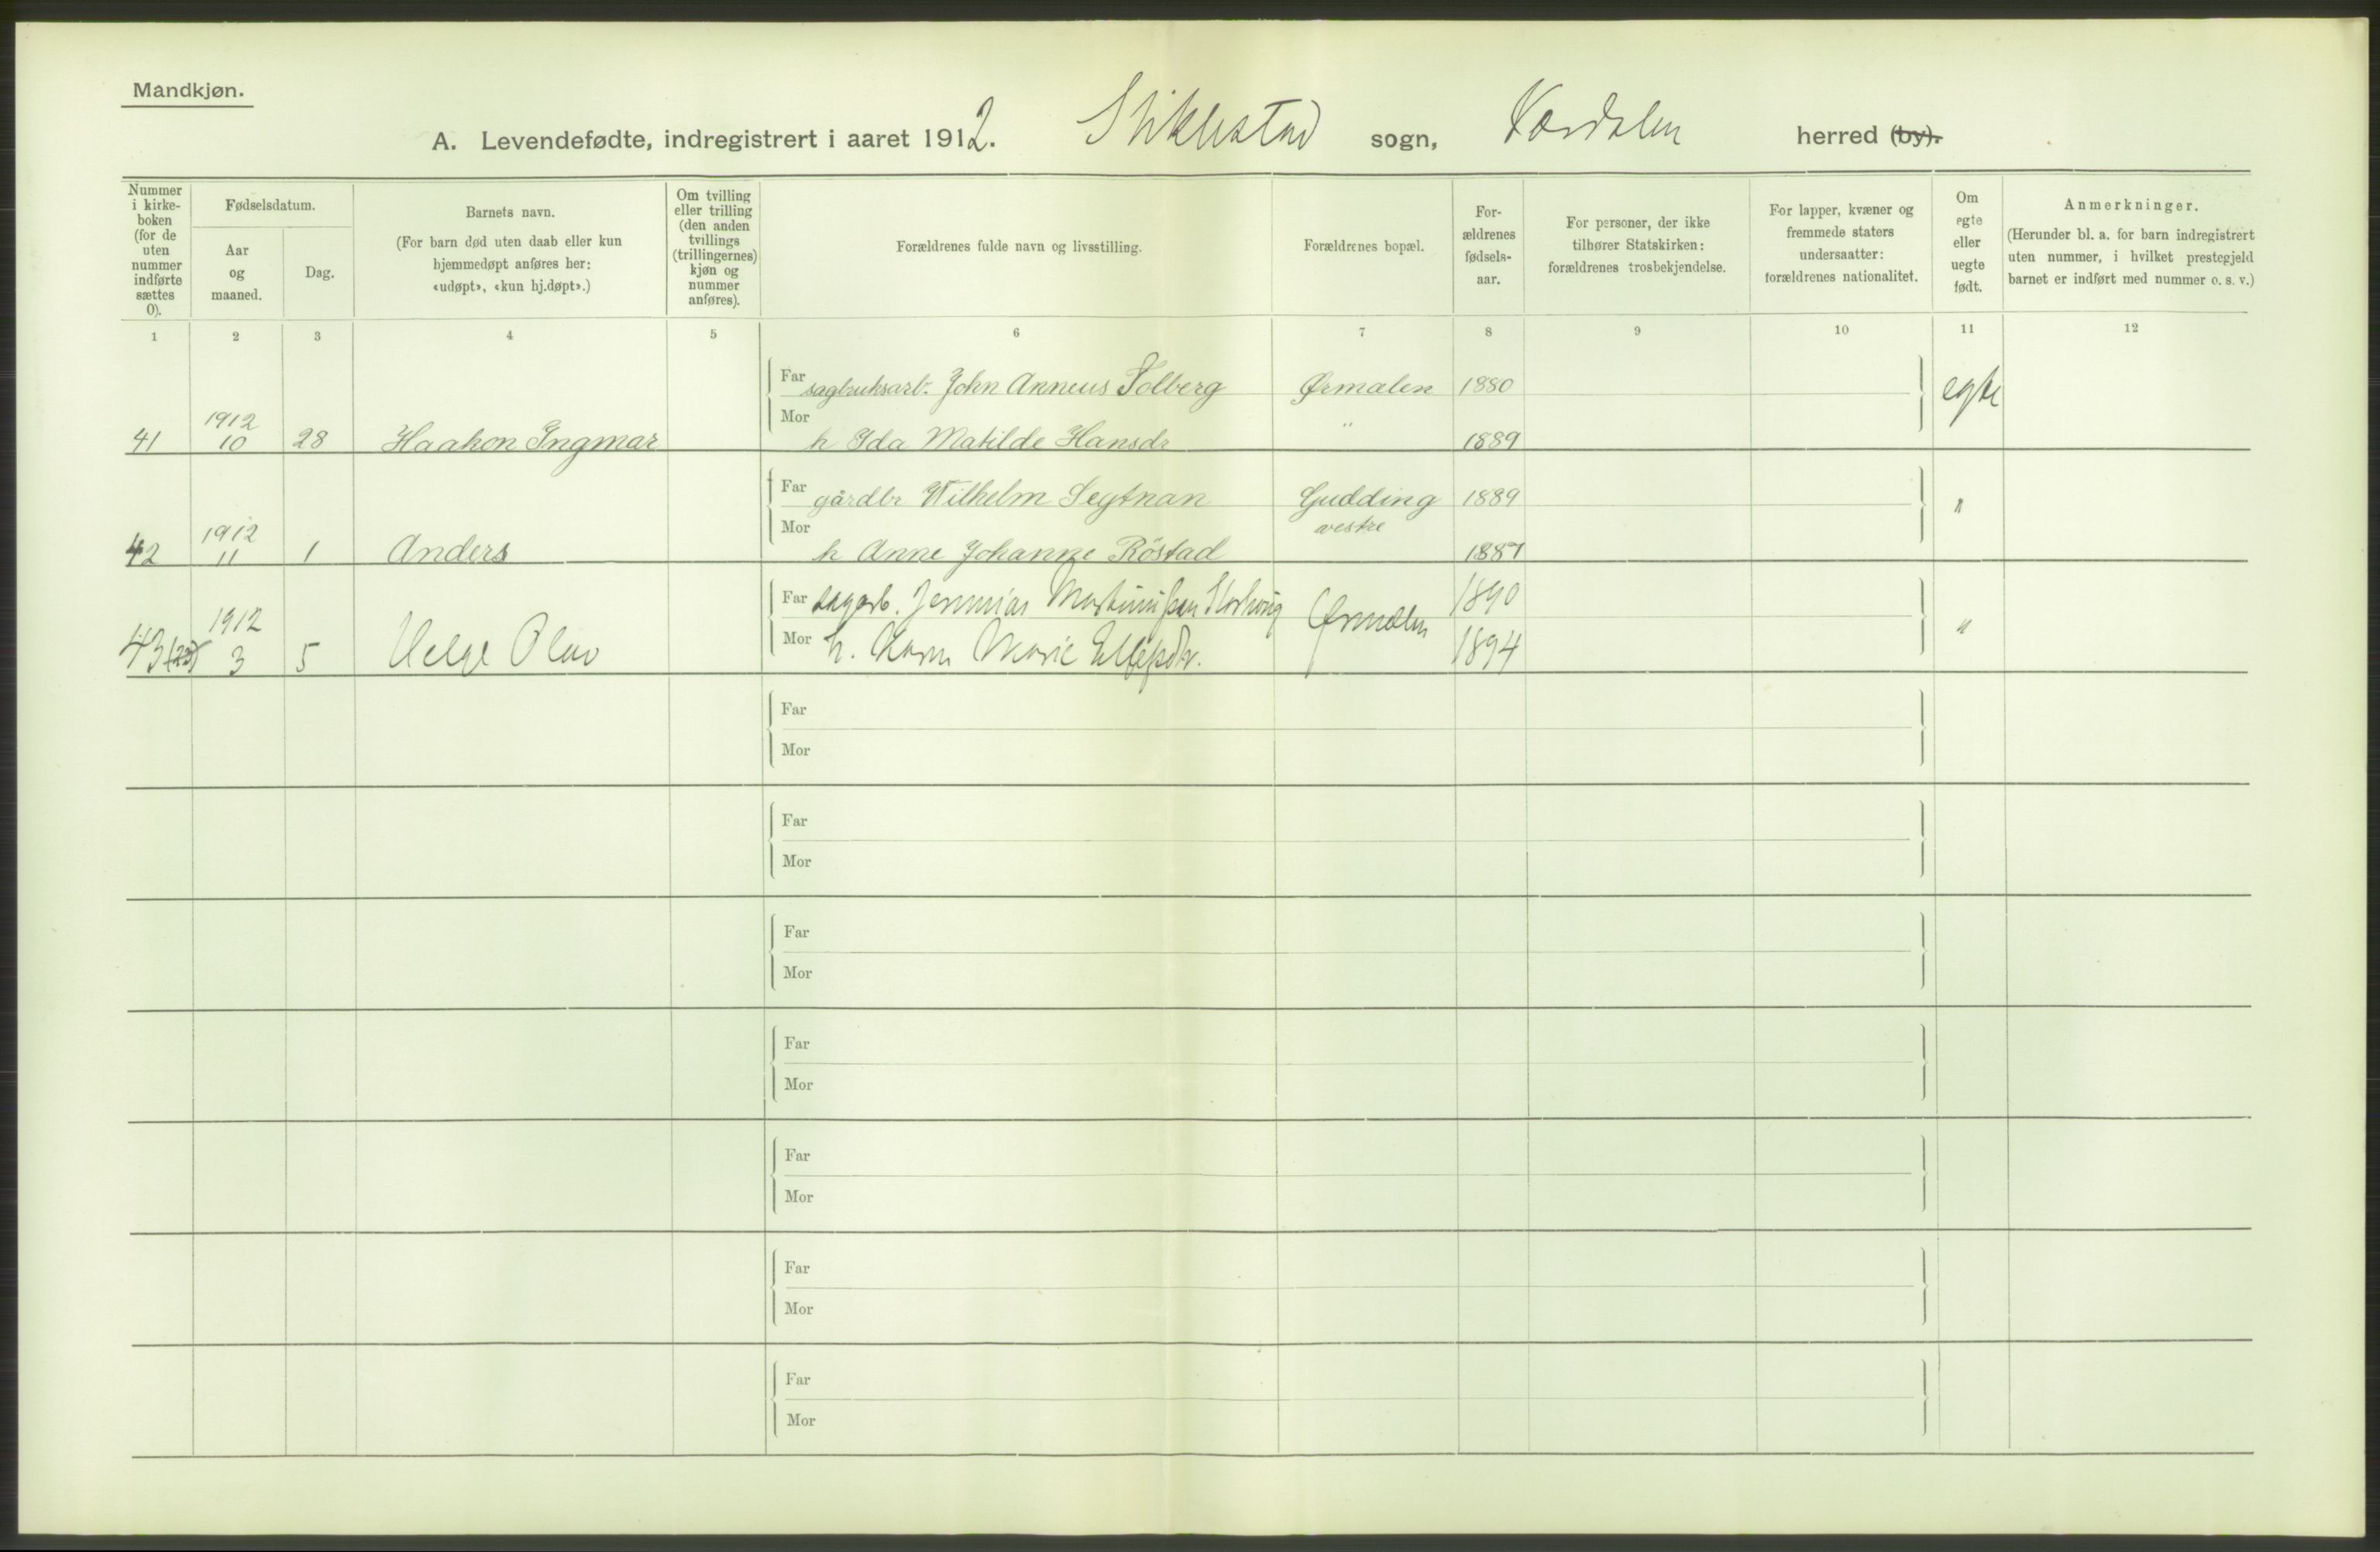 Mandkjøn.
A. Levendefødte, indregistrert i aaret 1912. Stiklestad sogn, Værdalen herred (by).
Nummer i kirke-boken (for de uten nummer indførte sættes 0).
Fødselsdatum.
Aar og maaned.
Dag.
Barnets navn.
(For barn død uten daab eller kun hjemmedøpt anføres her: «udøpt», «kun hj.døpt».)
Om tvilling eller trilling (den anden tvillings (trillingernes) kjøn og nummer anføres).
Forældrenes fulde navn og livsstilling.
Forældrenes bopæl.
For-ældrenes fødsels-aar.
For personer, der ikke tilhører Statskirken: forældrenes trosbekjendelse.
For lapper, kvæner og fremmede staters undersaatter: forældrenes nationalitet.
Om egte eller uegte født.
Anmerkninger.
(Herunder bl. a. for barn indregistrert uten nummer, i hvilket prestegjeld barnet er indført med nummer o. s. v.)
1 2 3 4 5 6 7 8 9 10 11 12
Far sagbruksarb. John Anneus Solberg Ørmælen 1880 egte
1912
Mor
41 10 28 Haakon Ingmar h Ida Matilde Hansdr " 1889
Far gårdbr Wilhelm Segtnan Gudding 1889 "
1912
Mor vestre
42 11 1 Anders h Anne Johanne Röstad 1887
Far sagarb. Jeremias Martinussen Storhaug Ørmælen 1890
1912 "
43 (23) 3 5 Helge Olav Mor h. Karen Marie Ellefsdr. 1894
Far
Mor
Far
Mor
Far
Mor
Far
Mor
Far
Mor
Far
Mor
Far
Mor